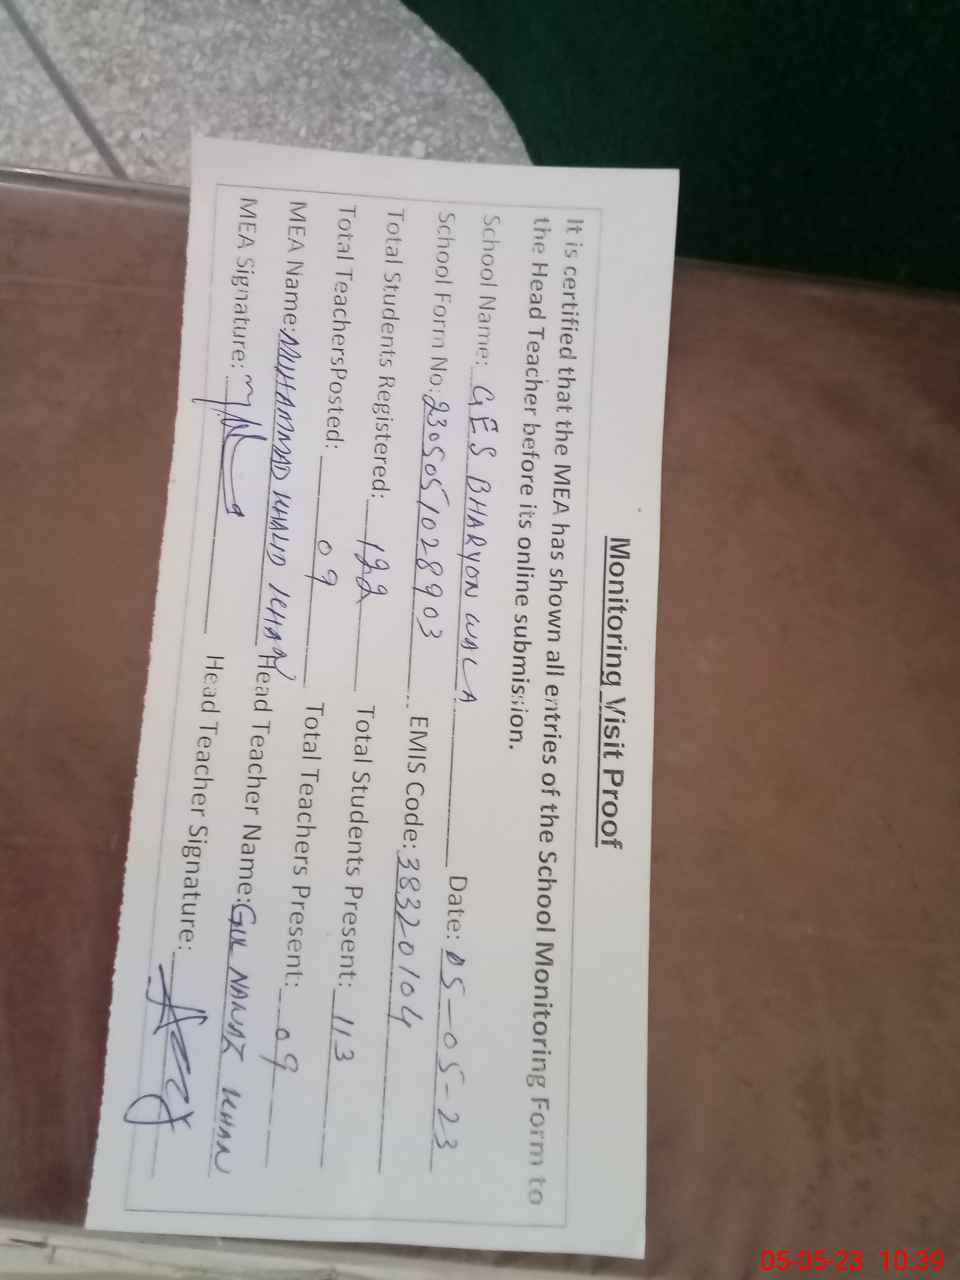 Monitoring Visit Proof
It is certified that the MEA has shown all entries of the School Monitoring Form to
the Head Teacher before its online submission.
School Name: GES BHARYON WALA Date: 05-05-23
School Form No: 2305051028903 EMIS Code: 38320104
Total Students Registered: 122 Total Students Present: 113
Total TeachersPosted: 09 Total Teachers Present: 09
MEA Name: MUHAMMAD KHALID KHAN Head Teacher Name: GUL NAWAZ KHAN
MEA Signature: Head Teacher Signature:
05-05-23 10:39